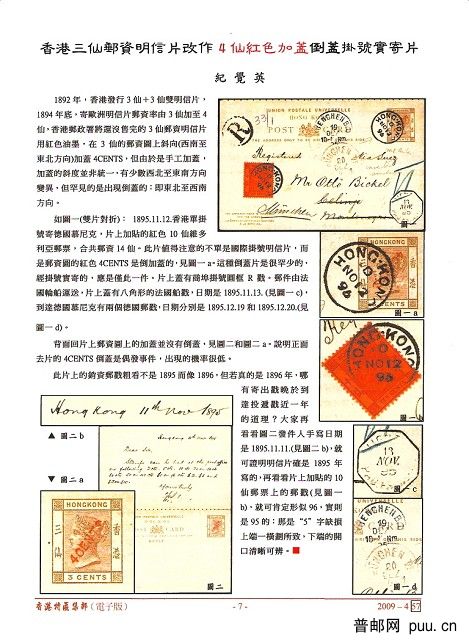 香港三仙郵資明信片改作4仙紅色加蓋倒蓋掛號實寄片
紀覺英
1892年，香港發行3仙+3仙雙明信片，
1894年底，寄歐洲明信片郵資率由3仙加至4
仙，香港郵政署將還沒售完的3仙郵資明信片
用紅色油墨，在3仙的郵資圖上斜向(西南至
東北方向)加蓋4CENTS，但由於是手工加蓋，
加蓋的斜度並非統一，有少數西北至東南方向
變異，但罕見的是出現倒蓋的；即東北至西南
方向。
如圖一(雙片對折)：1895.11.12.香港單掛
號寄德國慕尼克，片上加貼的紅色10仙維多
利亞郵票，合共郵資14仙。此片值得注意的不單是國際掛號明信片，而
是郵資圖的紅色4CENTS是倒加蓋的，見圖一a。這種倒蓋片是很罕少的，
經掛號實寄的，應是僅此一件，片上蓋有商埠掛號圖框R戳。郵件由法
國輪船運送，片上蓋有八角形的法國船戳，日期是1895.11.13.(見圖一c)，
到達德國慕尼克有兩個德國郵戳，日期分別是1895.12.19和1895.12.20.(見
圖一d)。
背面回片上郵資圖上的加蓋並沒有倒蓋，見圖二和圖二a。說明正面
去片的4CENTS倒蓋是偶發事件，出現的機率很低。
此片上的銷資郵戳粗看不是1895而像1896，但若真的是1896年，哪
有寄出戳晚於到
達投遞戳近一年
的道理？大家再
看看圖二發件人手寫日期
是1895.11.11.(見圖二b)，就
可證明明信片確是1895年
寫的，再看看片上加貼的10
仙郵票上的郵戳(見圖一
b)，就可肯定形似96，實則
是95的：那是"5"字缺損
上端一橫劃所致，下端的開
口清晰可辨。
R
UNION POSTALE UNIVERSELLE
HONG KONG
POST CARD
Registered
Mr Otto Bickel
München
圖一
HONG-KONG
D
NO 12
95
3 CENTS
圖一a
HONG-KONG
D
NO 12
95
圖一b
13
NOV
95
圖一c
MUENCHEN
19
圖一d
Hongkong 11th Nov 1895
▲ 圖二b
▼ 圖二a
HONGKONG
香港
三仙
4CENTS
3 CENTS
Dear Sir,
圖二
香港精嚴集郵(電子版)
- 7 -
2009 – 4
57
普邮网 puu.cn